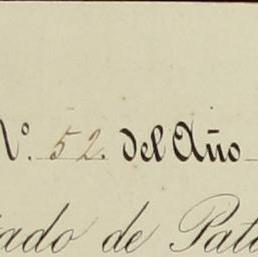 Nº. 52. del Año
tado de Pat